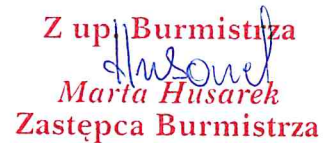 Z up. Burmistrza
Marta Husarek
Zastępca Burmistrza